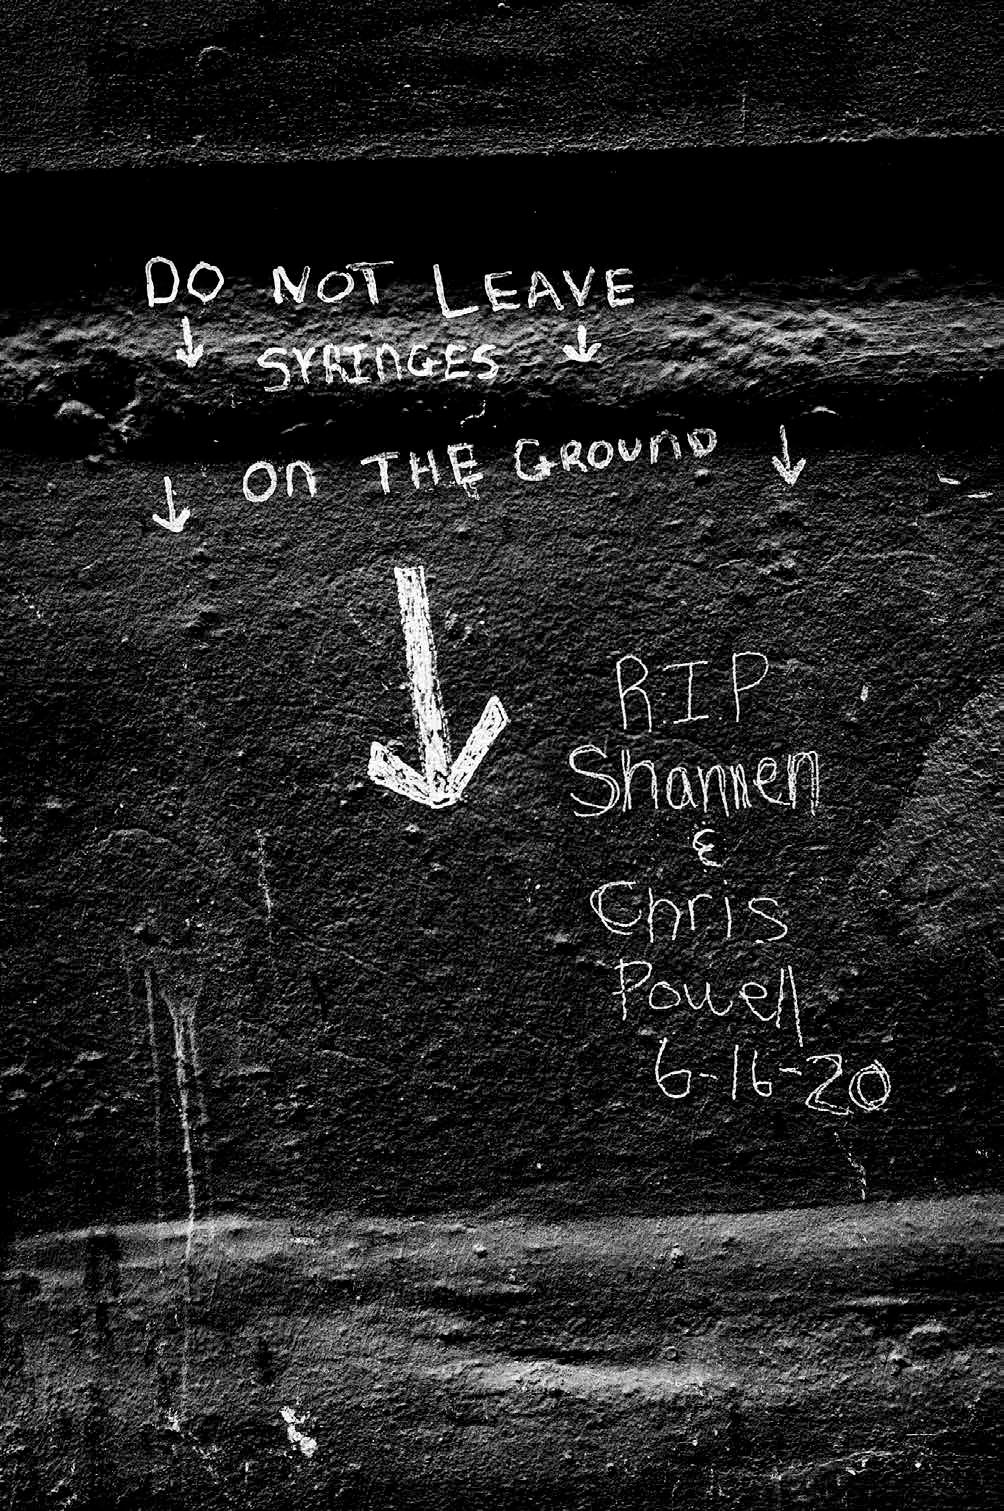 DO NOT LEAVE
SYRINGES
ON THE GROUND
R.I.P
Shannen
&
Chris
Powell
6-16-20